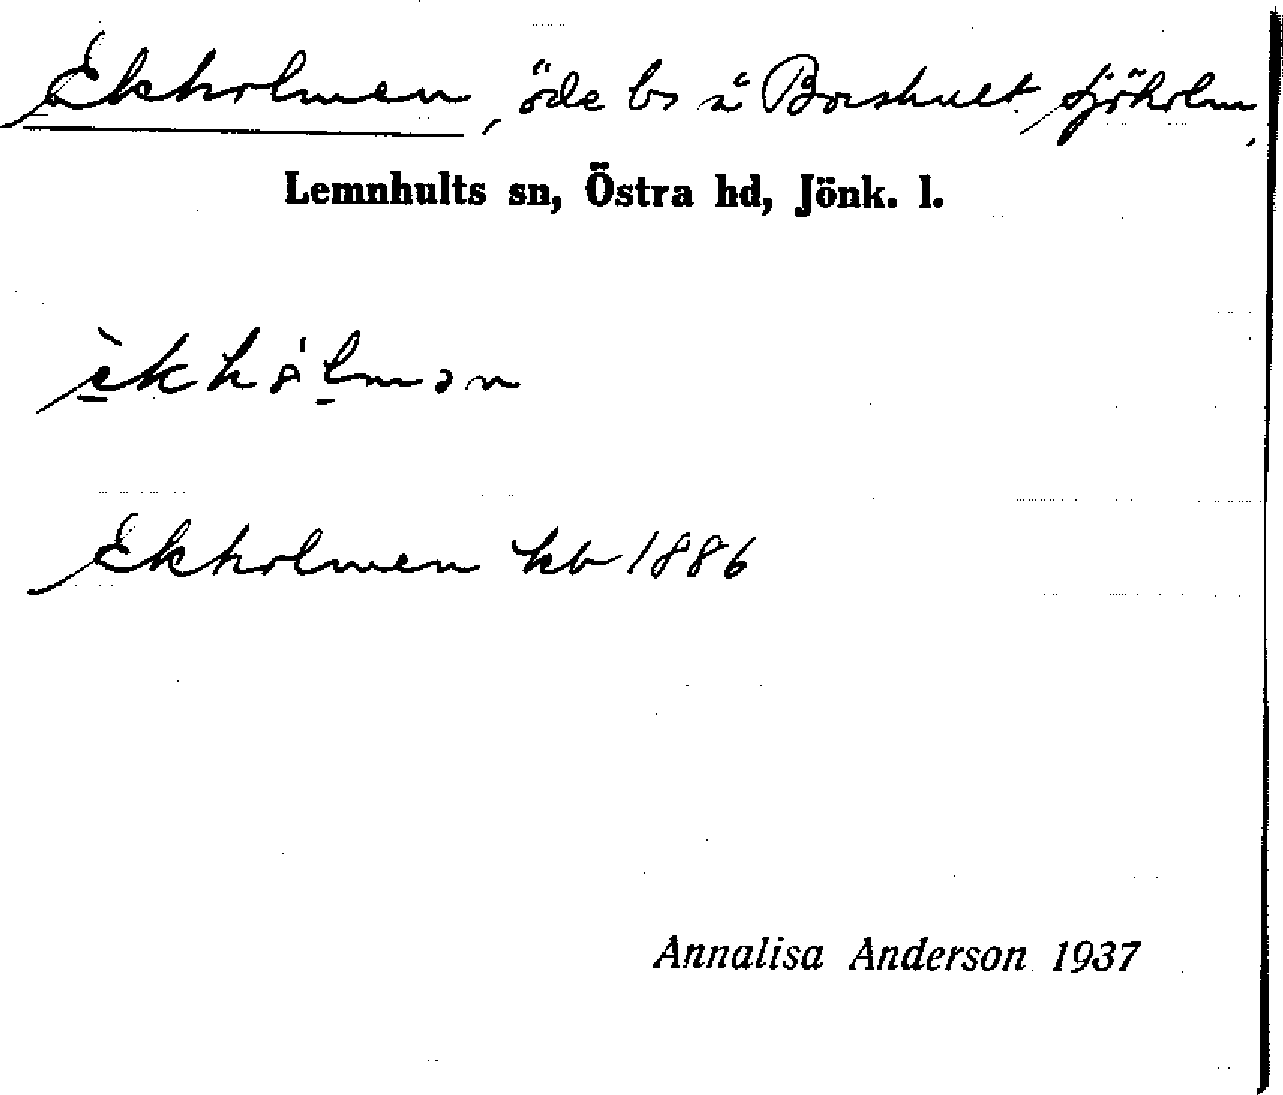 Ekholmen, öde bs å Borshult, Sjöholm,
Lemnhults sn, Östra hd, Jönk. l.
Ekholmen kb 1886
Annalisa Anderson 1937